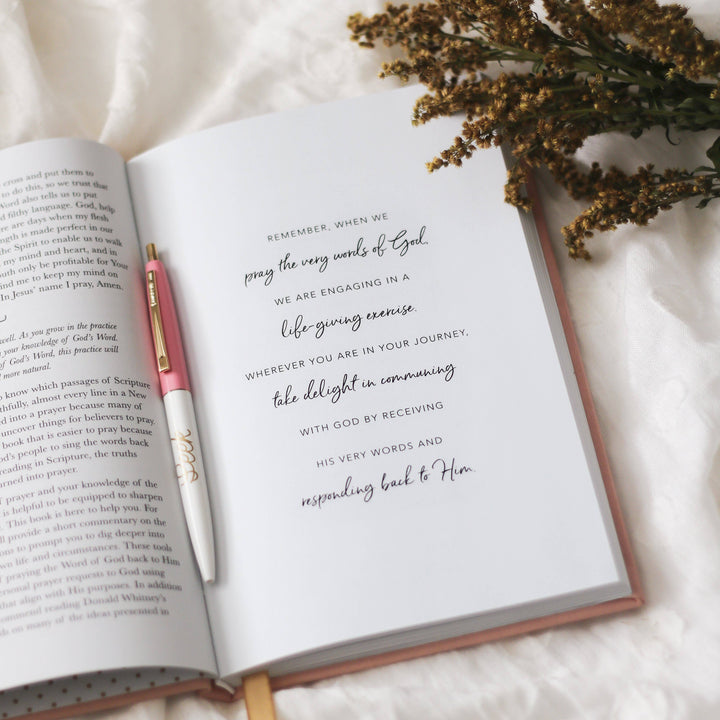 cross and put them
to do this, so we trust that
Word also tells us to put
and filthy language. God, help
ere are days when my flesh
ength is made perfect in our
the Spirit to enable us to walk
my mind and heart, and in
outh only be profitable for Your
ind me to keep my mind on
In Jesus' name I pray, Amen.
well. As you grow in the practice
your knowledge of God's Word.
of God's Word, this practice will
more natural.
to know which passages of Scripture
thfully, almost every line in a New
ed into a prayer because many of
uncover things for believers to pray.
book that is easier to pray because
od's people to sing the words back
reading in Scripture, the truths
urned into prayer.
f prayer and your knowledge of the
is helpful to be equipped to sharpen
. This book is here to help you. For
ll provide a short commentary on the
ons to prompt you to dig deeper into
wn life and circumstances. These tools
f praying the Word of God back to Him
ersonal prayer requests to God using
that align with His purposes. In addition
commend reading Donald Whitney's
ds on many of the ideas presented in
Seek
REMEMBER, WHEN WE
pray the very words of God,
WE ARE ENGAGING IN A
life-giving exercise.
WHEREVER YOU ARE IN YOUR JOURNEY,
take delight in communing
WITH GOD BY RECEIVING
HIS VERY WORDS AND
responding back to Him.